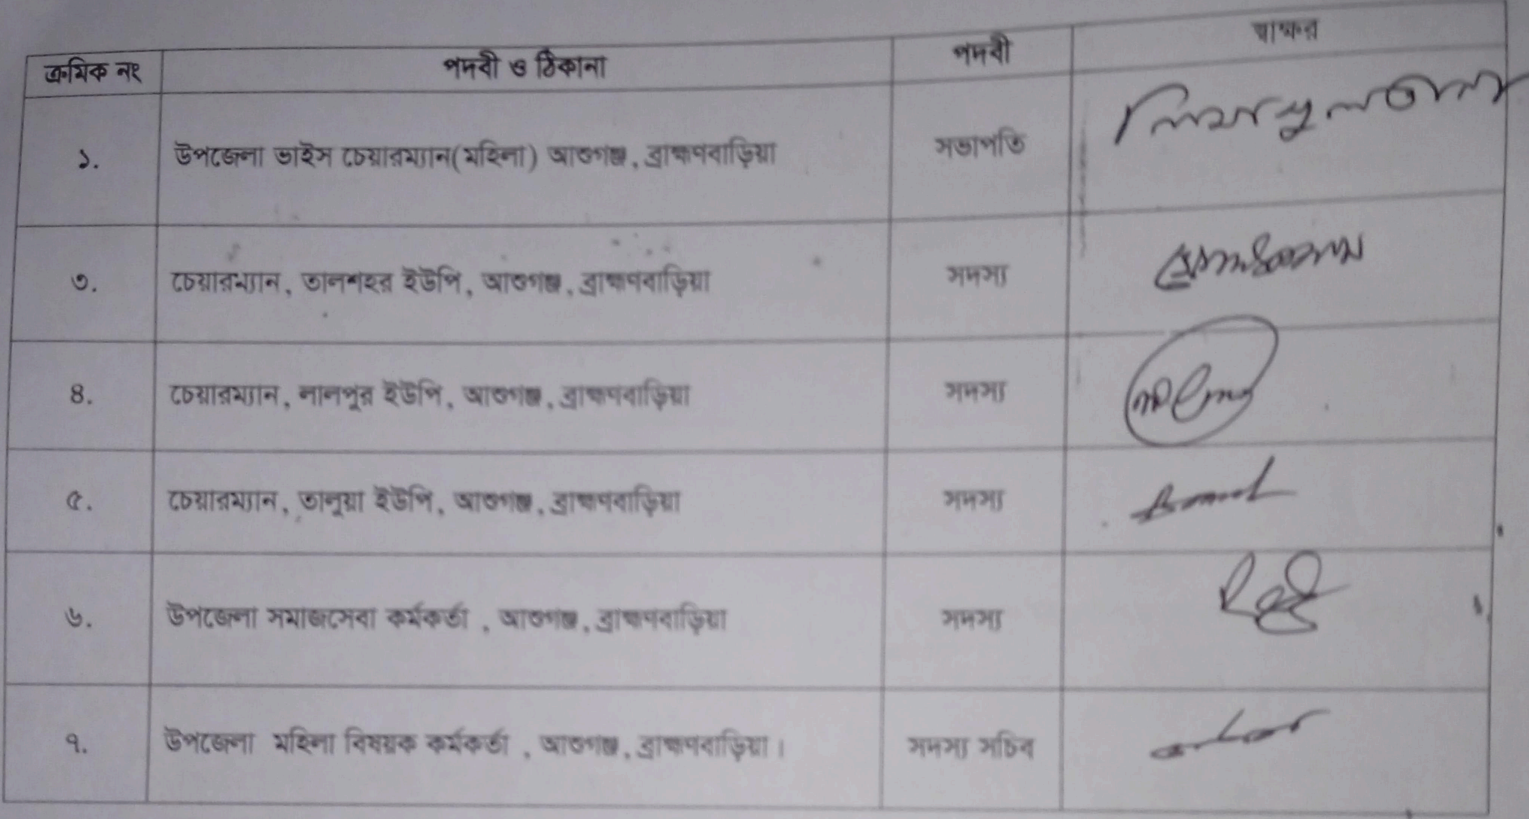 ক্রমিক নং পদবী ও ঠিকানা পদবী স্বাক্ষর
১. উপজেলা ভাইস চেয়ারম্যান(মহিলা) আশুগঞ্জ, ব্রাহ্মণবাড়িয়া সভাপতি
৩. চেয়ারম্যান, তালশহর ইউপি, আশুগঞ্জ, ব্রাহ্মণবাড়িয়া সদস্য
৪. চেয়ারম্যান, লালপুর ইউপি, আশুগঞ্জ, ব্রাহ্মণবাড়িয়া সদস্য
৫. চেয়ারম্যান, তালুয়া ইউপি, আশুগঞ্জ, ব্রাহ্মণবাড়িয়া সদস্য
৬. উপজেলা সমাজসেবা কর্মকর্তা , আশুগঞ্জ, ব্রাহ্মণবাড়িয়া সদস্য
৭. উপজেলা মহিলা বিষয়ক কর্মকর্তা , আশুগঞ্জ, ব্রাহ্মণবাড়িয়া। সদস্য সচিব